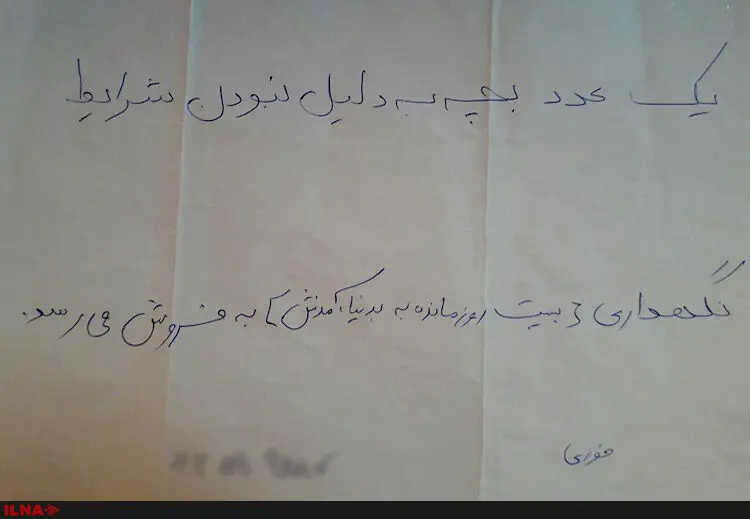 یک عدد بچه به دلیل نبودن شرایط
نگهداری (بیست روز مانده به بدنیا آمدنش) به فروش می رسد.
فوری
ILNA